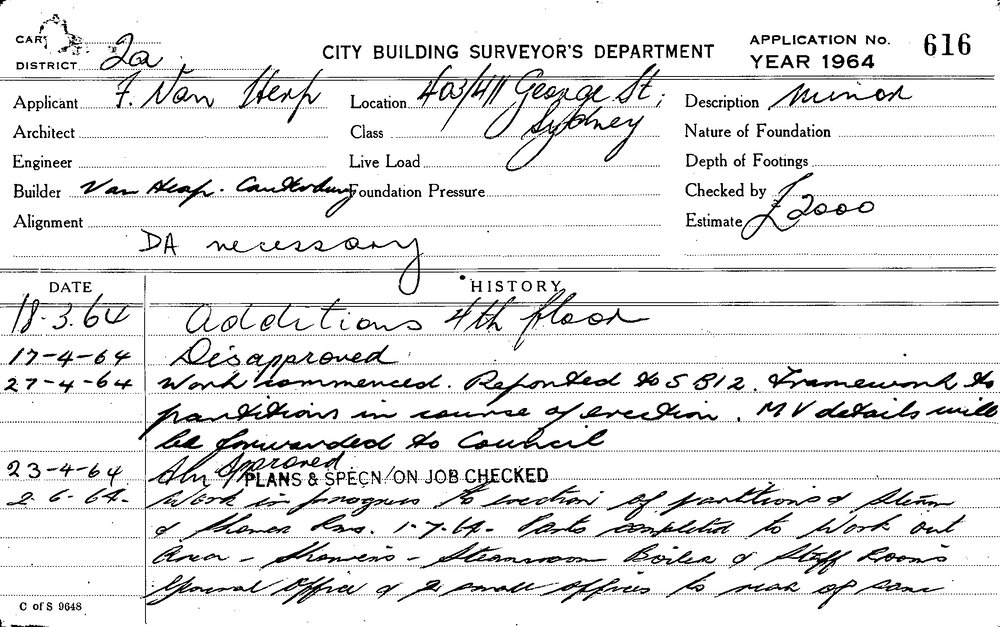 CARD
DISTRICT 2a
CITY BUILDING SURVEYOR'S DEPARTMENT
APPLICATION No. 616
YEAR 1964
Applicant F. Van Herp
Location 403/411 George St;
Sydney
Description Minor
Architect
Class
Nature of Foundation
Engineer
Live Load
Depth of Footings
Builder Van Herp. Canterbury
Foundation Pressure
Checked by
Alignment
Estimate £2000
DA necessary
DATE HISTORY
18.3.64 Additions 4th floor
17-4-64 Disapproved
27-4-64 Work commenced. Reported to S B12. Framework to
partitions in course of erection. MV details will
be forwarded to Council
23-4-64 Approved
PLANS & SPECN/ON JOB CHECKED
2.6.64. Work in progress to erection of partitions & Steam
& Shower Rms. 1-7-64- Parts completed to Work out
Area - Showers - Steamroom Boiler & Staff Rooms
General Office & 2 small offices to rear of same
C of S 9648